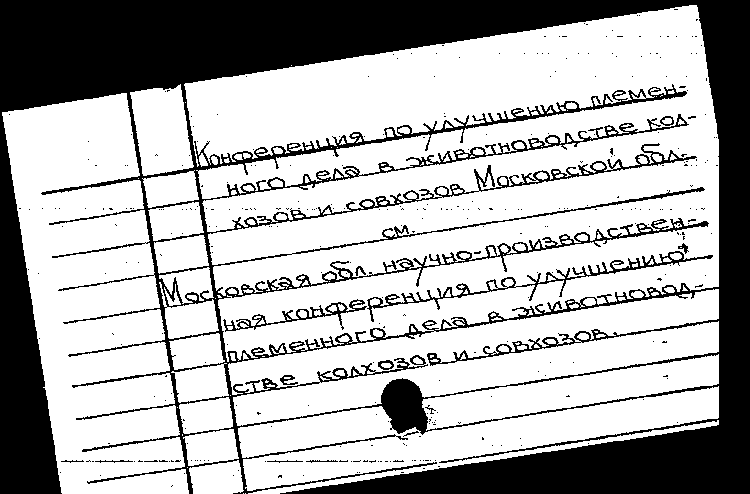 Конференция по улучшению племен-
ного дела в животноводстве кол-
хозов и совхозов Московской обл.
см.
Московская обл. научно-производствен-
ная конференция по улучшению
племенного дела в животновод-
стве колхозов и совхозов.